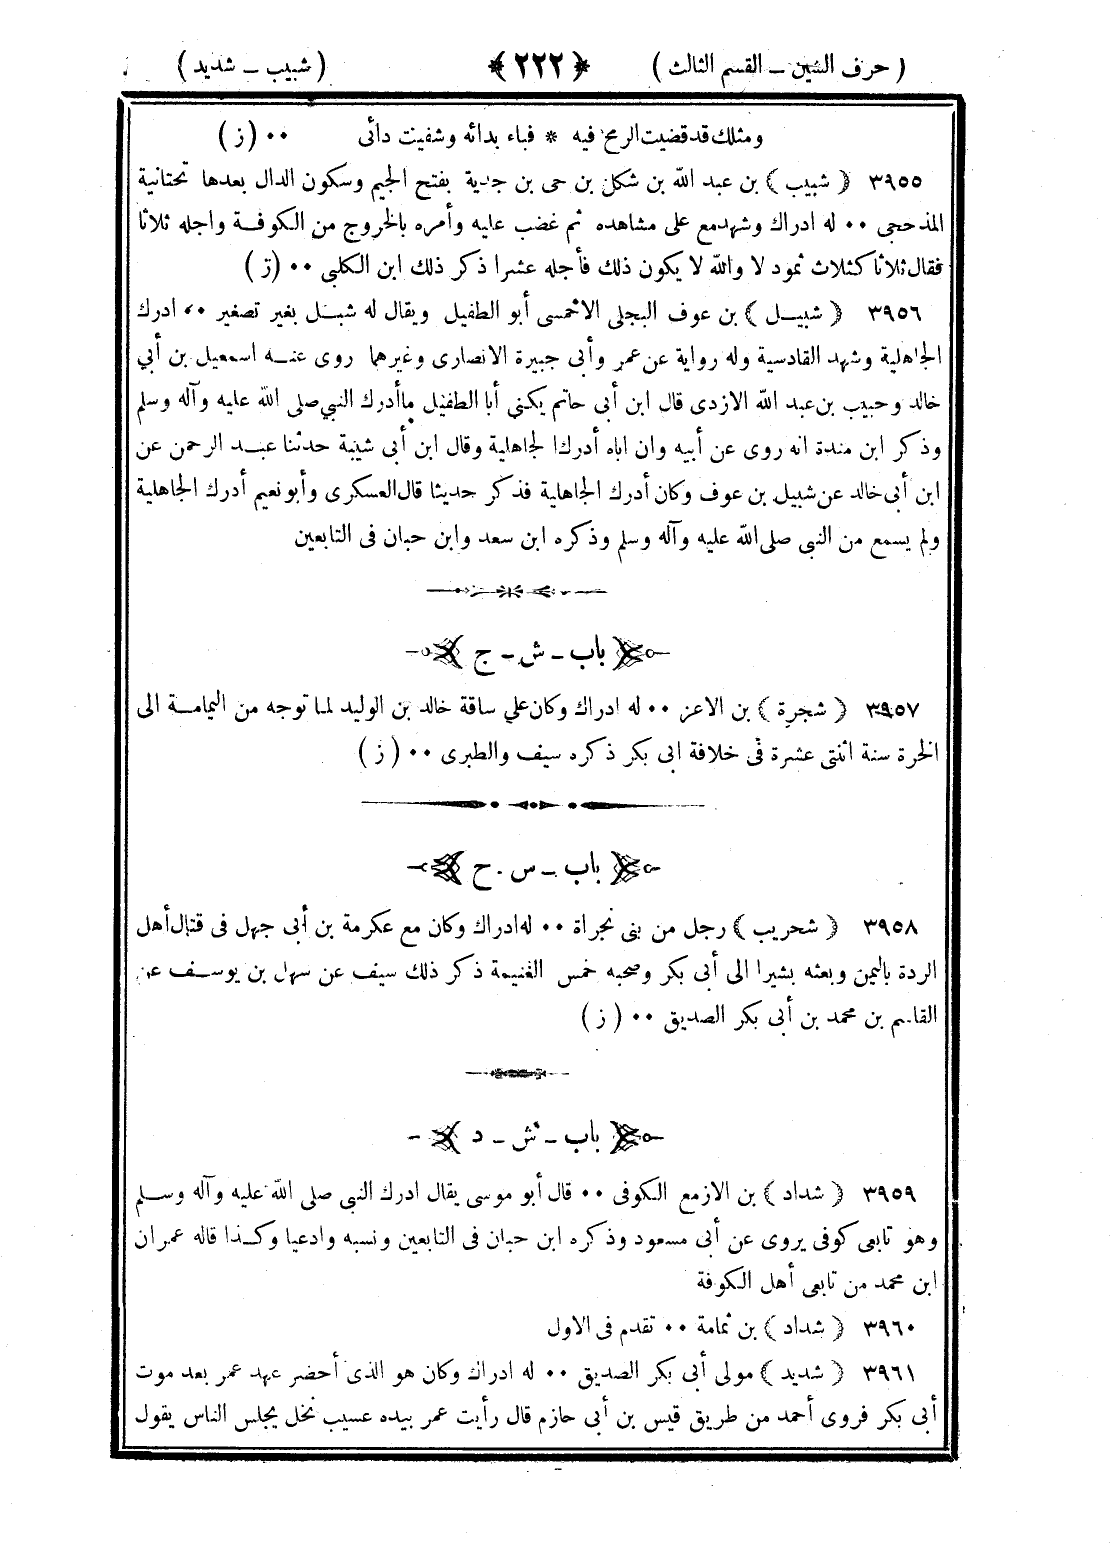 ( حرف الشين ــ القسم الثالث ) ﴿ ٢٢٢ ﴾ ( شبيب ــ شديد )
ومثلك قد قضيت الرمح فيه * فباء بدائه وشفيت دائى ٠٠ ( ز )
٣٩٥٥ ﴿ شبيب ﴾ بن عبد الله بن شكل بن حى بن جدية بفتح الجيم وسكون الدال بعدها تحتانية
المذحجى ٠٠ له ادراك وشهد مع على مشاهده ثم غضب عليه وأمره بالخروج من الكوفة واجله ثلاثا
فقال ثلاثا كثلاث ثمود لا والله لا يكون ذلك فأجله عشرا ذكر ذلك ابن الكلبى ٠٠ ( ز )
٣٩٥٦ ﴿ شبيل ﴾ بن عوف البجلى الاحمسى أبو الطفيل ويقال له شبل بغير تصغير ٠٠ ادرك
الجاهلية وشهد القادسية وله رواية عن عمر وأبى جبيرة الانصارى وغيرهما روى عنه اسمعيل بن أبي
خالد وحبيب بن عبد الله الازدى قال ابن أبى حاتم يكنى أبا الطفيل ما أدرك النبي صلى الله عليه وآله وسلم
وذكر ابن مندة انه روى عن أبيه وان اباه أدرك الجاهلية وقال ابن أبى شيبة حدثنا عبد الرحمن عن
ابن أبى خالد عن شبيل بن عوف وكان أدرك الجاهلية فذكر حديثا قال العسكرى وأبو نعيم أدرك الجاهلية
ولم يسمع من النبى صلى الله عليه وآله وسلم وذكره ابن سعد وابن حبان فى التابعين
باب ــ ش ــ ج
٣٩٥٧ ﴿ شجرة ﴾ بن الاعز ٠٠ له ادراك وكان علي ساقة خالد بن الوليد لما توجه من اليمامة الى
الحرة سنة اثنتى عشرة فى خلافة ابى بكر ذكره سيف والطبرى ٠٠ ( ز )
باب ــ س . ح
٣٩٥٨ ﴿ شحريب ﴾ رجل من بنى نجراة ٠٠ له ادراك وكان مع عكرمة بن أبي جهل فى قتال أهل
الردة باليمن وبعثه بشيرا الى أبى بكر وصحبه خمس الغنيمة ذكر ذلك سيف عن سهل بن يوسف عن
القاسم بن محمد بن أبى بكر الصديق ٠٠ ( ز )
باب ــ ش ــ د
٣٩٥٩ ﴿ شداد ﴾ بن الازمع الكوفى ٠٠ قال أبو موسى يقال ادرك النبى صلى الله عليه وآله وسلم
وهو تابعى كوفى يروى عن أبى مسعود وذكره ابن حبان فى التابعين ونسبه وادعيا وكذا قاله عمران
ابن محمد من تابعى أهل الكوفة
٣٩٦٠ ﴿ شداد ﴾ بن ثمامة ٠٠ تقدم فى الاول
٣٩٦١ ﴿ شديد ﴾ مولى أبى بكر الصديق ٠٠ له ادراك وكان هو الذى أحضر عهد عمر بعد موت
أبى بكر فروى أحمد من طريق قيس بن أبي حازم قال رأيت عمر بيده عسيب نخل يجلس الناس يقول